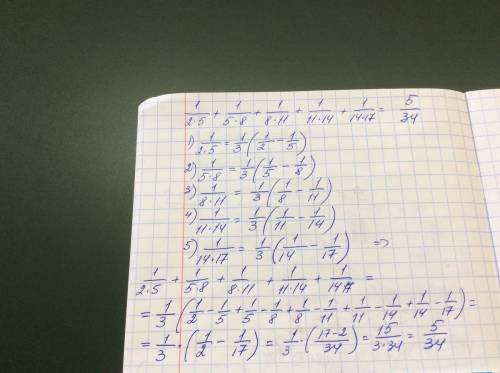 1/(2·5) + 1/(5·8) + 1/(8·11) + 1/(11·14) + 1/(14·17) = 5/34
1) 1/(2·5) = 1/3 (1/2 − 1/5)
2) 1/(5·8) = 1/3 (1/5 − 1/8)
3) 1/(8·11) = 1/3 (1/8 − 1/11)
4) 1/(11·14) = 1/3 (1/11 − 1/14)
5) 1/(14·17) = 1/3 (1/14 − 1/17) ⇒
1/(2·5) + 1/(5·8) + 1/(8·11) + 1/(11·14) + 1/(14·17) =
= 1/3 (1/2 − 1/5 + 1/5 − 1/8 + 1/8 − 1/11 + 1/11 − 1/14 + 1/14 − 1/17) =
= 1/3 · (1/2 − 1/17) = 1/3 · ((17−2)/34) = 15/(3·34) = 5/34